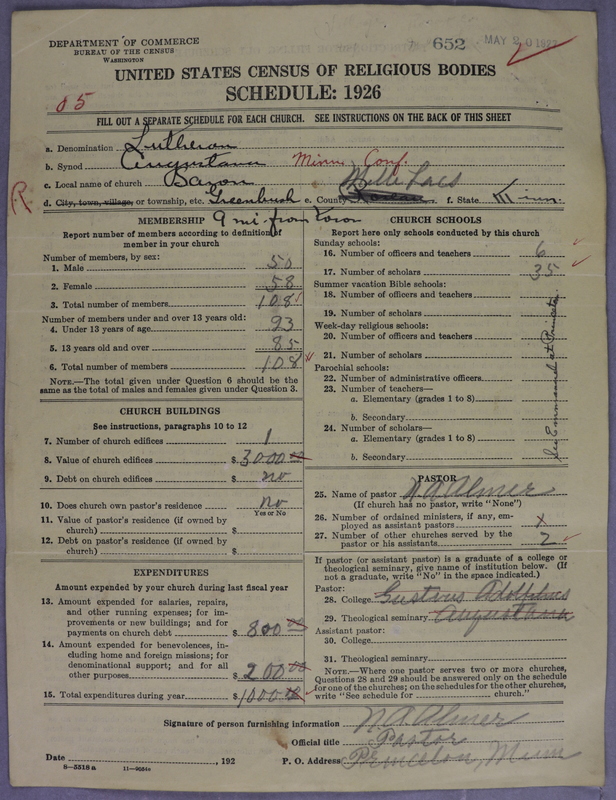 DEPARTMENT OF COMMERCE
BUREAU OF THE CENSUS
WASHINGTON
652
MAY 20 1927
UNITED STATES CENSUS OF RELIGIOUS BODIES
SCHEDULE: 1926
05
FILL OUT A SEPARATE SCHEDULE FOR EACH CHURCH. SEE INSTRUCTIONS ON THE BACK OF THIS SHEET
a. Denomination Lutheran
b. Synod Augustana Minn. Conf.
c. Local name of church Baron
Mille Lacs
R
d. City, town, village, or township, etc. Greenbush e. County f. State Minn.
9 mi. from Town
MEMBERSHIP
Report number of members according to definition of
member in your church
Number of members, by sex:
1. Male 50
2. Female 58
3. Total number of members 108
Number of members under and over 13 years old:
4. Under 13 years of age 23
5. 13 years old and over 85
6. Total number of members 108
NOTE.—The total given under Question 6 should be
same as the total of males and females given under Question 3.
CHURCH BUILDINGS
See instructions, paragraphs 10 to 12
7. Number of church edifices 1
8. Value of church edifices $ 3000 00
9. Debt on church edifices $ no
10. Does church own pastor's residence no
Yes or No
11. Value of pastor's residence (if owned by
church) $
12. Debt on pastor's residence (if owned by
church) $
EXPENDITURES
Amount expended by your church during last fiscal year
13. Amount expended for salaries, repairs,
and other running expenses; for im-
provements or new buildings; and for
payments on church debt $ 800 00
14. Amount expended for benevolences, in-
cluding home and foreign missions; for
denominational support; and for all
other purposes $ 200 00
15. Total expenditures during year $ 1000 00
CHURCH SCHOOLS
Report here only schools conducted by this church
Sunday schools:
16. Number of officers and teachers 6
17. Number of scholars 35
Summer vacation Bible schools:
18. Number of officers and teachers
19. Number of scholars
Week-day religious schools:
20. Number of officers and teachers
21. Number of scholars
Parochial schools:
22. Number of administrative officers
23. Number of teachers—
a. Elementary (grades 1 to 8)
b. Secondary
24. Number of scholars—
a. Elementary (grades 1 to 8)
b. Secondary
See Emmanuel at Princeton
PASTOR
25. Name of pastor N. A. Almer
(If church has no pastor, write "None")
26. Number of ordained ministers, if any, em-
ployed as assistant pastors x
27. Number of other churches served by the
pastor or his assistants 2
If pastor (or assistant pastor) is a graduate of a college or
theological seminary, give name of institution below. (If
not a graduate, write "No" in the space indicated.)
Pastor:
28. College Gustavus Adolphus
29. Theological seminary Augustana
Assistant pastor:
30. College
31. Theological seminary
NOTE.—Where one pastor serves two or more churches,
Questions 28 and 29 should be answered only on the schedule
for one of the churches; on the schedules for the other churches,
write "See schedule for church."
Signature of person furnishing information N. A. Almer
Official title Pastor
Date , 192 P. O. Address Princeton, Minn
8—5518 a 11—9034